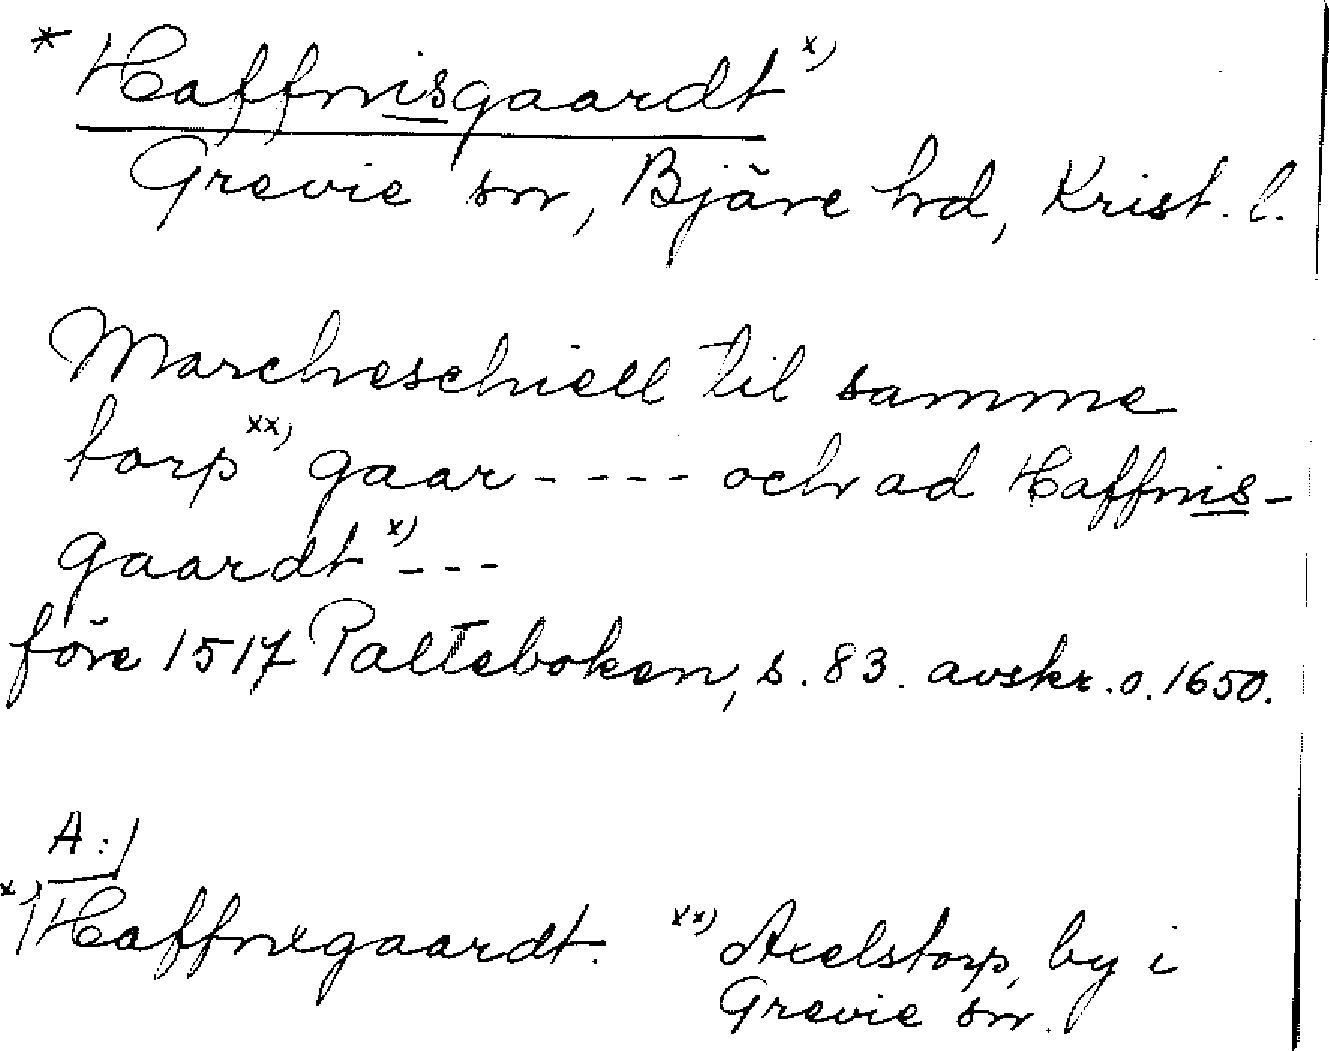 * Haffnisgaardt x)
Grevie sn, Bjäre hd, Krist. l.
Marcheschiell til samme
torp xx) gaar - - - - och ad Haffnis-
gaardt x) - - -
före 1517 Palteboken, s. 83. avskr. o. 1650.
A:)
x) Haffnegaardt. xx) Axelstorp, by i
Grevie sn.